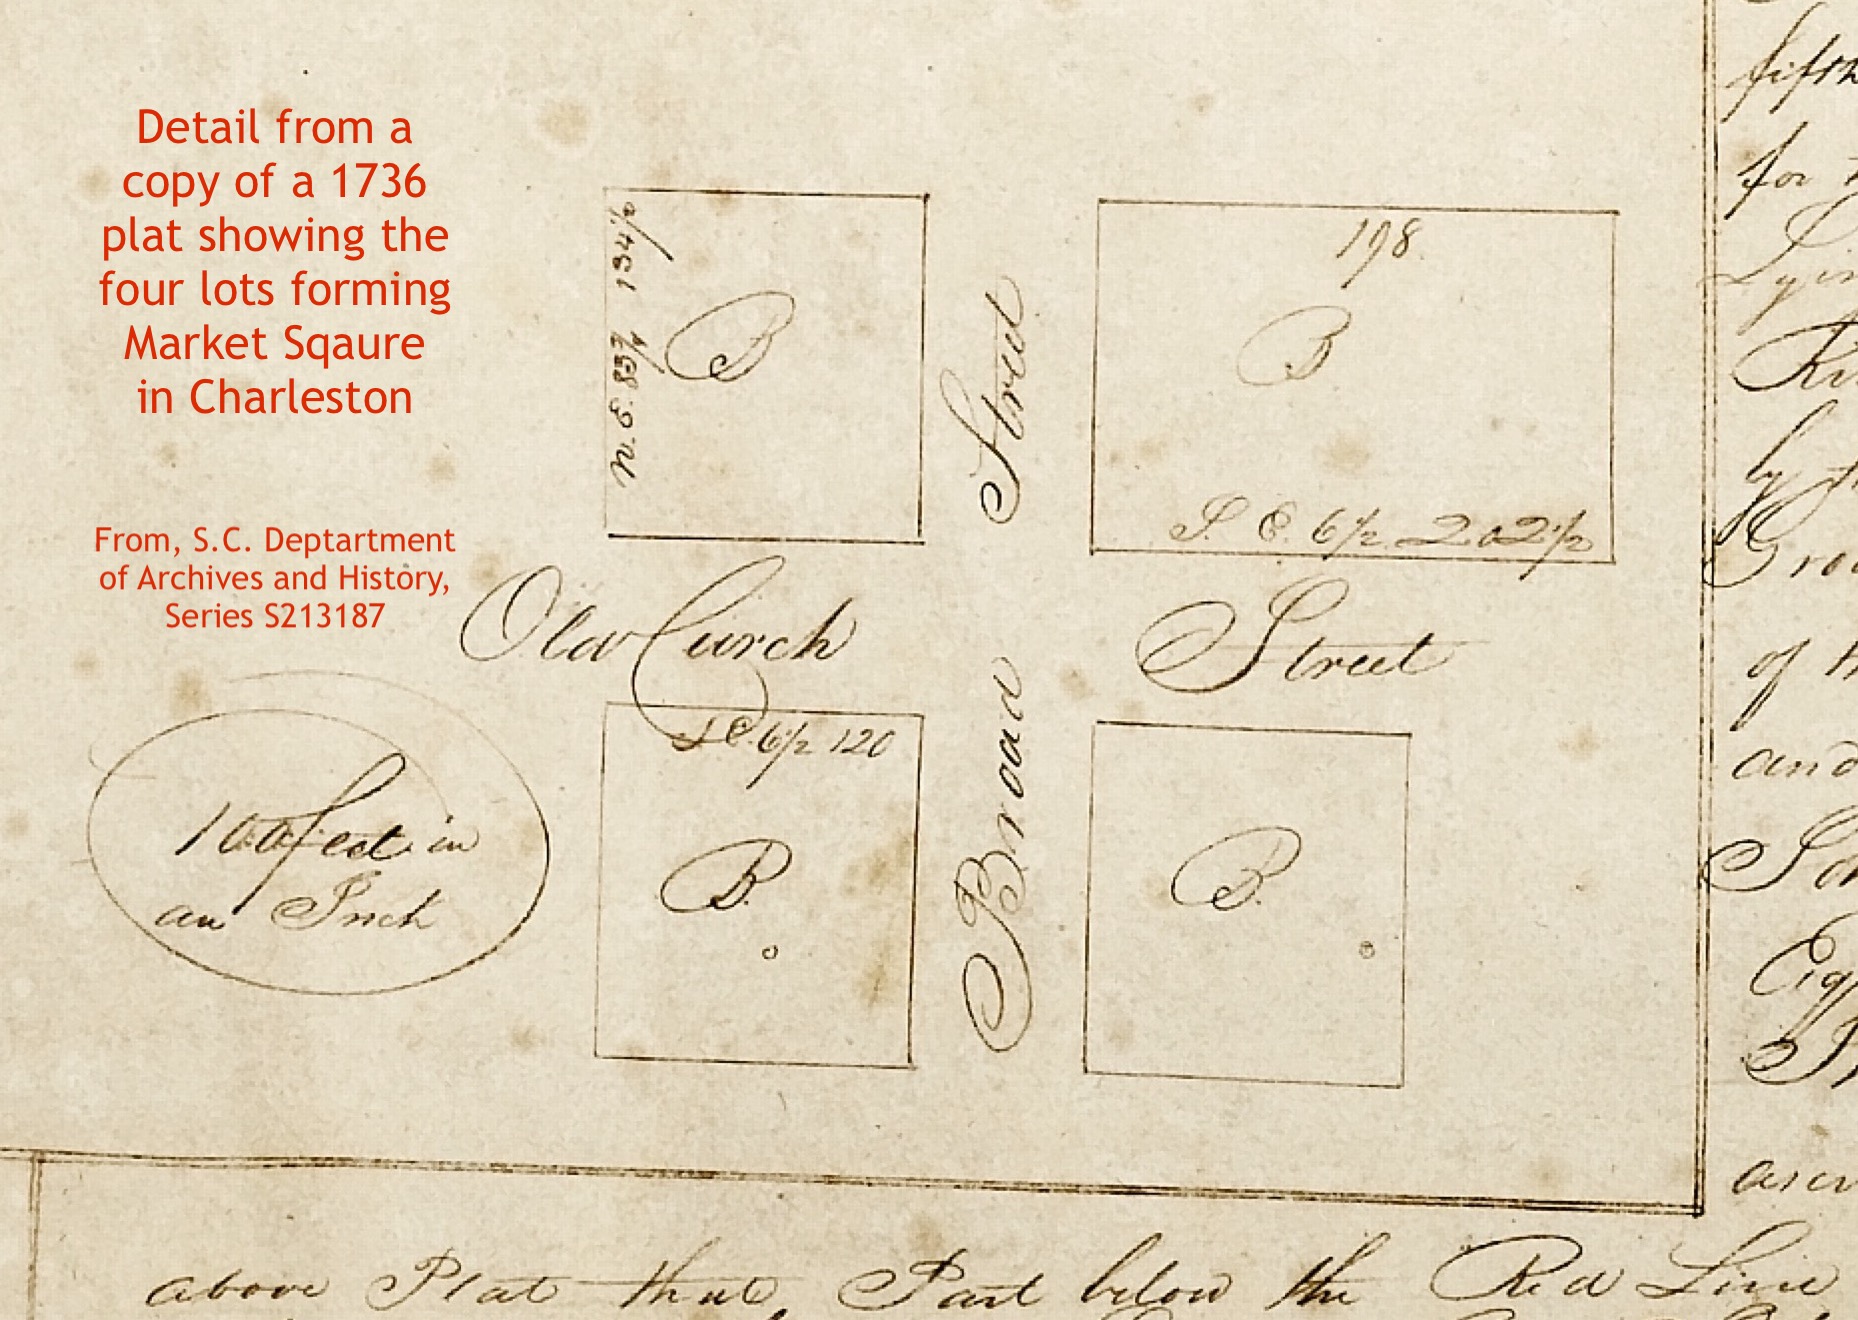 Detail from a
copy of a 1736
plat showing the
four lots forming
Market Sqaure
in Charleston
From, S.C. Deptartment
of Archives and History,
Series S213187
N. E. 83 3/4 134 1/2
B
Street
198
B
S. E. 6 1/2 202 1/2
Old Curch Street
S E. 6 1/2 120
B.
Broad
B.
100 feet in
an Inch
fifth
for
Lyin
by
of
and
above Plat that, Part below the Red Line